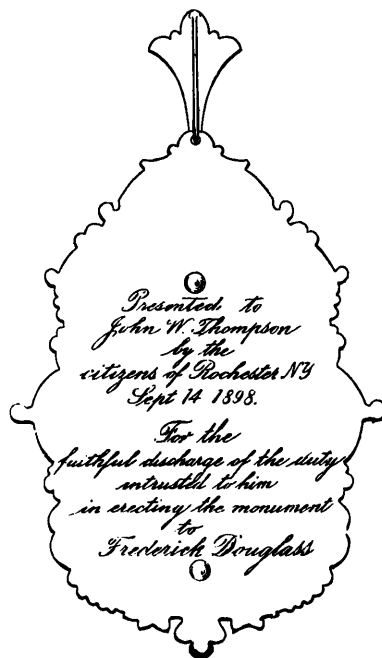 Presented to
John W. Thompson
by the
citizens of Rochester NY
Sept 14 1898.
For the
faithful discharge of the duty
intrusted to him
in erecting the monument
to
Frederick Douglass